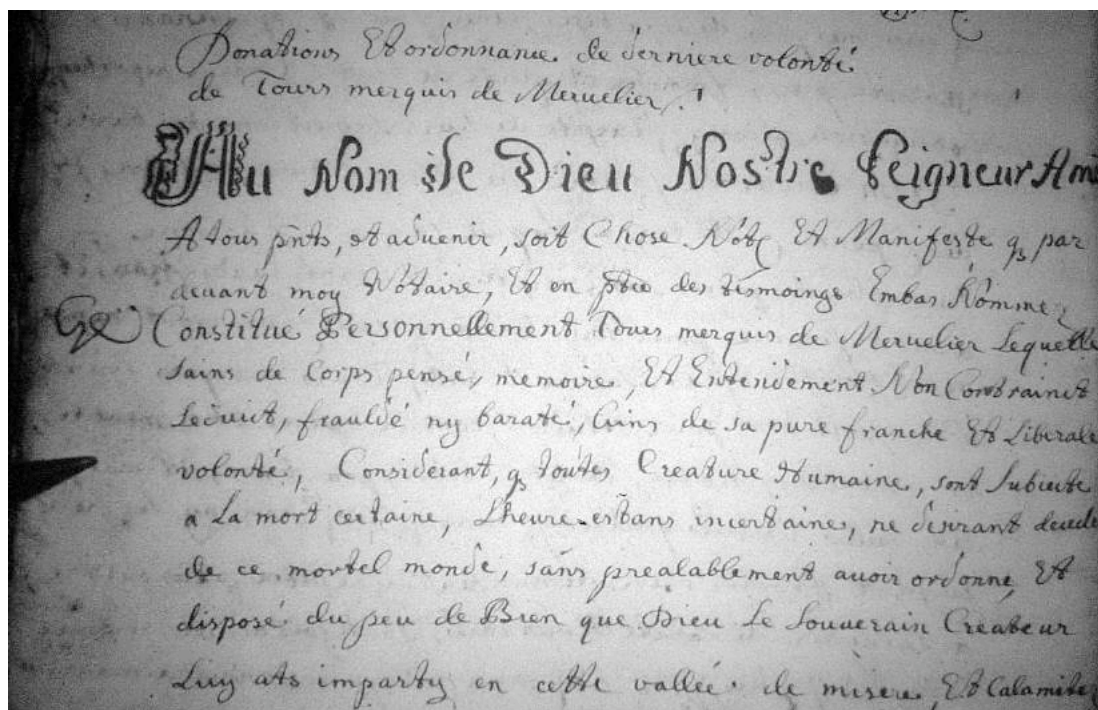 Donations Et ordonnance de derniere volonté
de Tours merquis de Meruelier.
Au Nom de Dieu Nostre Seigneur Am
A tous pnts, et aduenir, soit Chose Notz Et Manifeste qs par
deuant moy Notaire, Et en des tesmoings Embas Nommez
Constitué Personnellement Tours merquis de Meruelier Lequelle
sains de Corps pensé, memoire, Et Entendement Non Contrainct
Seduict, fraulde ny baraté, Ains de sa pure franche Et Liberale
volonté, Considerant, qs toutes Creature Humaine, sont Subiecte
a La mort certaine, Lheure estans incertaines, ne desirant decede
de ce mortel monde, sans prealablement auoir ordonne, Et
disposé du peu de Bien que Dieu Le Souuerain Createur
Luy ats imparty en cette vallée de misere, Et Calamitez